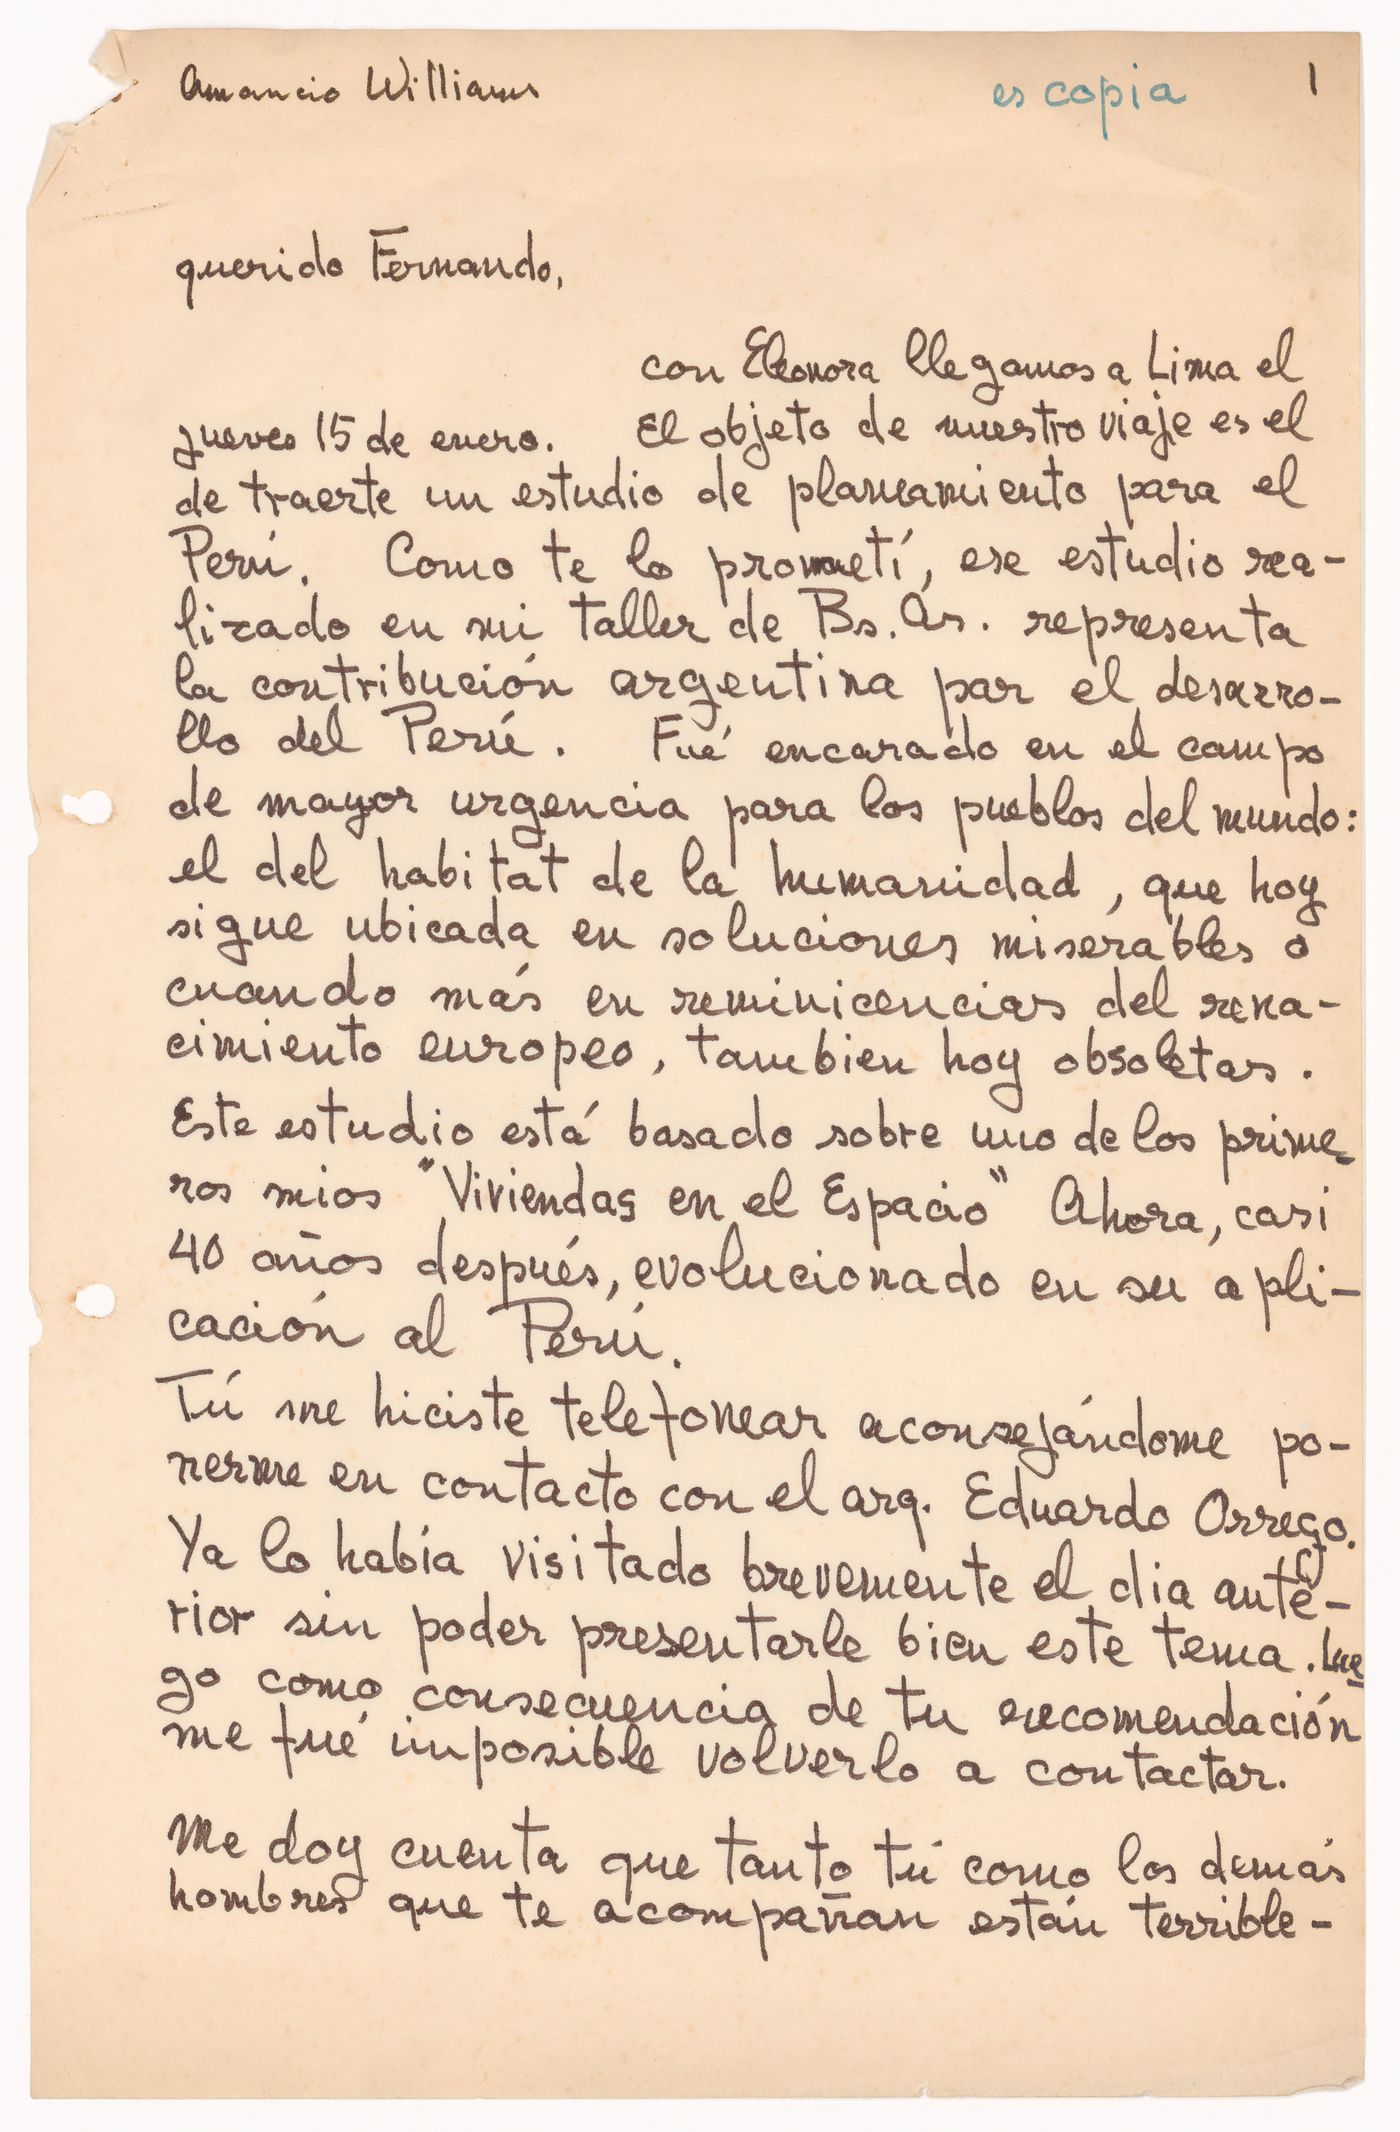 Amancio Williams
es copia
1
querido Fernando,
con Eleonora llegamos a Lima el
jueves 15 de enero. El objeto de nuestro viaje es el
de traerte un estudio de planeamiento para el
Perú. Como te lo prometí, ese estudio rea-
lizado en mi taller de Bs. As. representa
la contribución argentina par el desarro-
llo del Perú. Fué encarado en el campo
de mayor urgencia para los pueblos del mundo:
el del habitat de la humanidad, que hoy
sigue ubicada en soluciones miserables o
cuando más en reminicencias del rena-
cimiento europeo, tambien hoy obsoletas.
Este estudio está basado sobre uno de los prime-
ros mios "Viviendas en el Espacio" Ahora, casi
40 años después, evolucionado en su apli-
cación al Perú.
Tú me hiciste telefonear aconsejándome po-
nerme en contacto con el arq. Eduardo Orrego.
Ya lo había visitado brevemente el dia ante-
rior sin poder presentarle bien este tema. Lue
go como consecuencia de tu recomendación
me fué imposible volverlo a contactar.
Me doy cuenta que tanto tú como los demás
hombres que te acompañan están terrible-